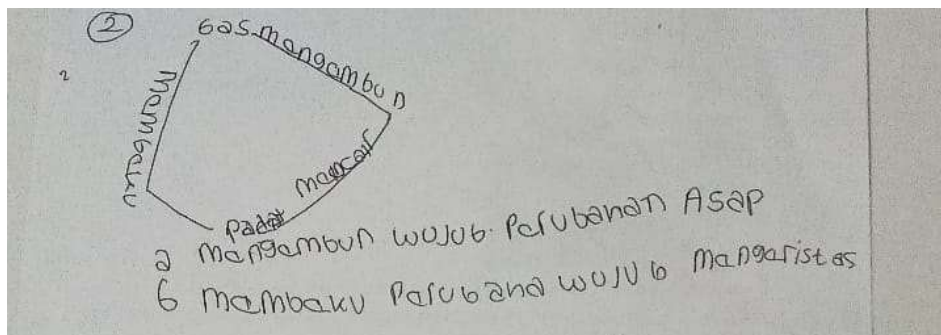 2
Gas mangambun
2
Mambaku
mancair
padat
a mangambun wujub. Parubahan Asap
b mambaku Parubana wujub mangaristas